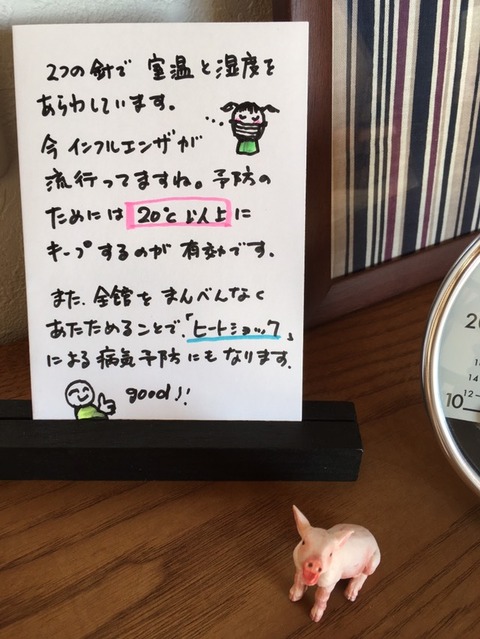 2つの針で 室温と湿度を
あらわしています。
今 インフルエンザが
流行ってますね。予防の
ためには 20℃以上に
キープするのが 有効です。
また、全館を まんべんなく
あたためることで、「ヒートショック」
による 病気予防にもなります。
good!!
20
14
12
10